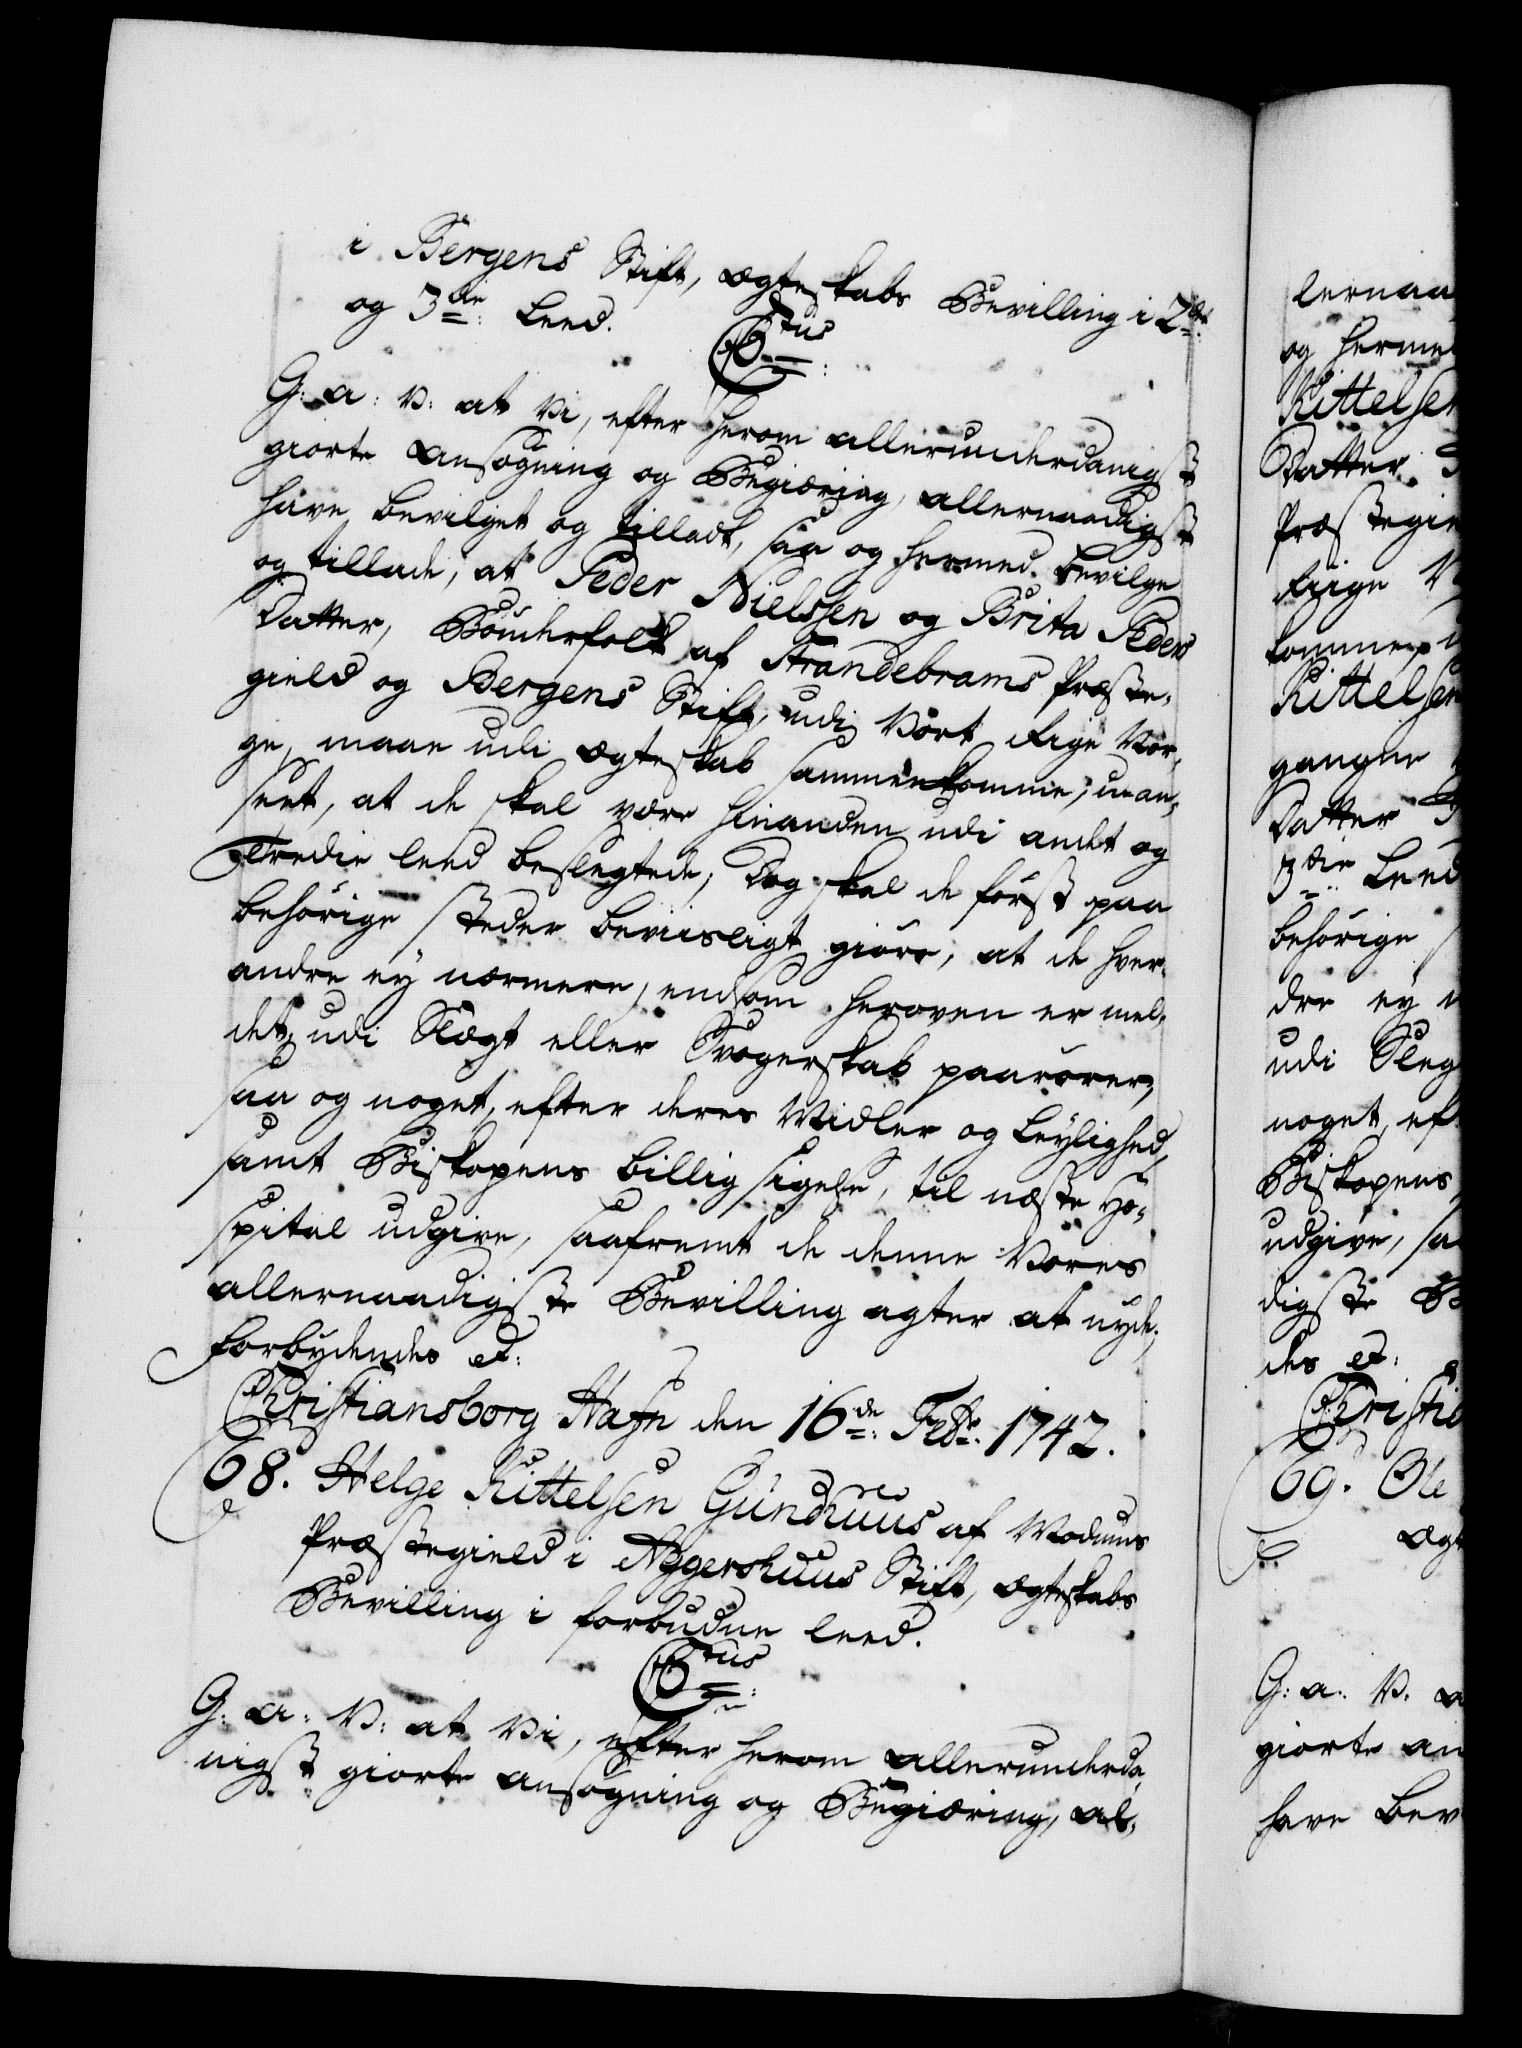 i Bergens Stift, Ægteskabs Bevilling i 2det
og 3die Leed.
C6tus
G: a: V: at Vi, efter herom allerunderdanigst
giorte Ansøgning og Begiæring, allernaadigst
have bevilget og tilladt, saa og hermed bevilge
og tillade, at Peder Nielssen og Brita Peders
Datter, Bønderfolk af Strandebrams Præste-
gield og Bergens Stift, udi Vort Rige Nor-
ge, maae udi Ægteskab sammenkomme; uan-
seet, at de skal være hinanden udi andet og
Tredie leed beslegtede; Dog skal de først paa
behørige steder beviisligt giøre, at de hver-
andre ey nærmere, end som heroven er mel-
det, udi Slægt eller Svogerskab paarører,
saa og noget, efter deres Midler og Leylighed,
samt Biskopens billig sigelse, til næste Ho-
spital udgive, saafremt de denne Vores
allernaadigste Bevilling agter at nyde;
Forbydendes et:
Christiansborg Hafn den 16de Febr. 1742.
68. Helge Kittelsen Gundhuus af Modums
Præstegield i Aggershuus Stift, Ægteskabs
Bevilling i forbudne leed.
C6tus
G: a: V: at Vi, efter herom allerunderda-
nigst giorte Ansøgning og Begiæring, al-
lernaa
og herme
Kittelsen
Datter
Præstegie
Rige N
komme,
Kittelsen
gangne
Datter
3die Leed
behørige
dre ey
udi Sleg
noget, ef
Biskopens
udgive, sa
digste B
des et:
Christia
69. Ole
Ægt
G: a: V: a
giorte an
have bev